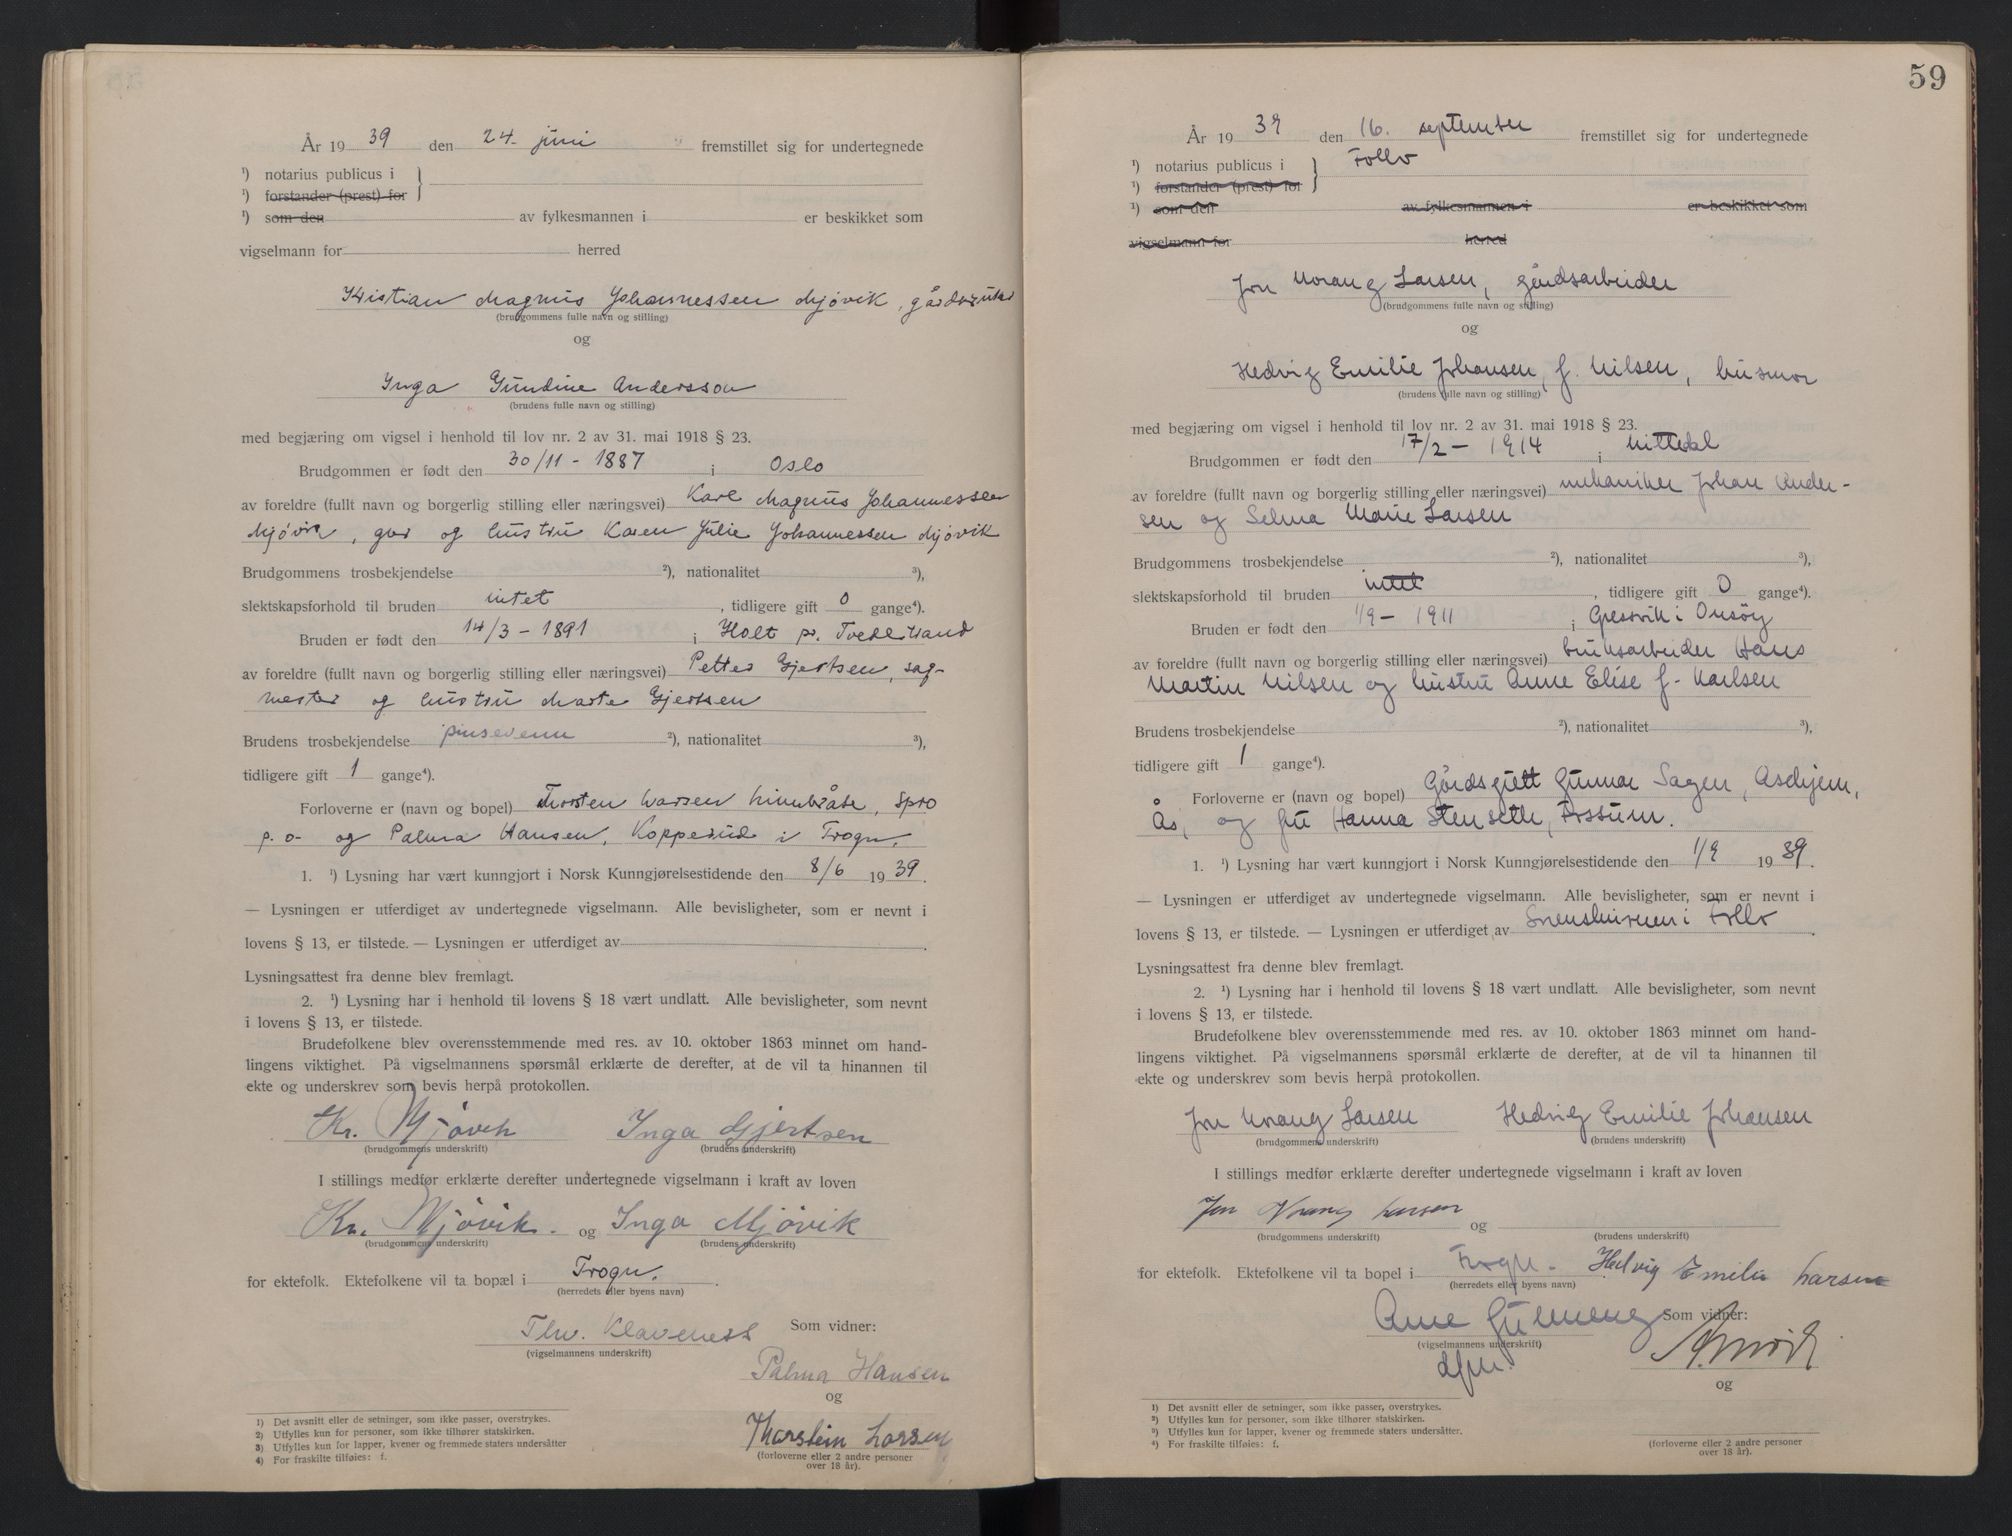 År 19 39 den 24. juni fremstillet sig for undertegnede
¹) notarius publicus i
¹) forstander (prest) for
¹) som den av fylkesmannen i er beskikket som
vigselmann for herred
Kristian Magnus Johannessen Mjøvik,
(brudgommens fulle navn og stilling)
og
Inga Gundine Andersson
(brudens fulle navn og stilling)
med begjæring om vigsel i henhold til lov nr. 2 av 31. mai 1918 § 23.
Brudgommen er født den 30/11 - 1887 i Oslo
av foreldre (fullt navn og borgerlig stilling eller næringsvei) Karl Magnus Johannessen
Mjøvik, gbr og hustru Karen Julie Johannessen Mjøvik
Brudgommens trosbekjendelse ²), nationalitet ³),
slektskapsforhold til bruden intet, tidligere gift 0 gange⁴).
Bruden er født den 14/3 - 1891 i Holt pr. Tvedestrand
av foreldre (fullt navn og borgerlig stilling eller næringsvei) Petter Gjertsen, sag-
mester og hustru Marte Gjertsen
Brudens trosbekjendelse pinsevenn ²), nationalitet ³),
tidligere gift 1 gange⁴).
Forloverne er (navn og bopel) Thorsten Larsen, Spro
p.o. og Palma Hansen, Kopperud i Frogn.
1. ¹) Lysning har vært kunngjort i Norsk Kunngjørelsestidende den 8/6 19 39.
— Lysningen er utferdiget av undertegnede vigselmann. Alle bevisligheter, som er nevnt i
lovens § 13, er tilstede. — Lysningen er utferdiget av
Lysningsattest fra denne blev fremlagt.
2. ¹) Lysning har i henhold til lovens § 18 vært undlatt. Alle bevisligheter, som nevnt
i lovens § 13, er tilstede.
Brudefolkene blev overensstemmende med res. av 10. oktober 1863 minnet om hand-
lingens viktighet. På vigselmannens spørsmål erklærte de derefter, at de vil ta hinannen til
ekte og underskrev som bevis herpå protokollen.
Kr. Mjøvik Inga Gjertsen
(brudgommens underskrift) (brudens underskrift)
I stillings medfør erklærte derefter undertegnede vigselmann i kraft av loven
Kr. Mjøvik. og Inga Mjövik
(brudgommens underskrift) (brudens underskrift)
for ektefolk. Ektefolkene vil ta bopæl i Frogn.
(herredets eller byens navn)
Thv. Klaveness Som vidner:
(vigselmannens underskrift)
Palma Hansen
og
Thorstein Larsen
(forloverne eller 2 andre personer
over 18 år).
1) Det avsnitt eller de setninger, som ikke passer, overstrykes.
2) Utfylles kun for personer, som ikke tilhører statskirken.
3) Utfylles kun for lapper, kvener og fremmede staters undersåtter
4) For fraskilte tilføies: f.
59
År 19 39 den 16. september fremstillet sig for undertegnede
¹) notarius publicus i Follo
¹) forstander (prest) for
¹) som den av fylkesmannen i er beskikket som
vigselmann for herred
Jon Vrang Larsen, gårdsarbeider
(brudgommens fulle navn og stilling)
og
Hedvig Emilie Johansen, f. Nilsen, husmor
(brudens fulle navn og stilling)
med begjæring om vigsel i henhold til lov nr. 2 av 31. mai 1918 § 23.
Brudgommen er født den 17/2 - 1914 i Nittedal
av foreldre (fullt navn og borgerlig stilling eller næringsvei) mekaniker Johan Ander-
sen og Selma Marie Larsen
Brudgommens trosbekjendelse ²), nationalitet ³),
slektskapsforhold til bruden intet, tidligere gift 0 gange⁴).
Bruden er født den 1/9 - 1911 i Gressvik i Onsøy
av foreldre (fullt navn og borgerlig stilling eller næringsvei) bruksarbeider Hans
Martin Nilsen og hustru Anne Elise f. Karlsen
Brudens trosbekjendelse ²), nationalitet ³),
tidligere gift 1 gange⁴).
Forloverne er (navn og bopel) Gårdsgutt Gunnar Sagen, Askjem,
Ås, og fru Hanna Stenseth, Fossum.
1. ¹) Lysning har vært kunngjort i Norsk Kunngjørelsestidende den 1/9 19 39.
— Lysningen er utferdiget av undertegnede vigselmann. Alle bevisligheter, som er nevnt i
lovens § 13, er tilstede. — Lysningen er utferdiget av Sorenskriveren i Follo.
Lysningsattest fra denne blev fremlagt.
2. ¹) Lysning har i henhold til lovens § 18 vært undlatt. Alle bevisligheter, som nevnt
i lovens § 13, er tilstede.
Brudefolkene blev overensstemmende med res. av 10. oktober 1863 minnet om hand-
lingens viktighet. På vigselmannens spørsmål erklærte de derefter, at de vil ta hinannen til
ekte og underskrev som bevis herpå protokollen.
Jon Vrang Larsen Hedvig Emilie Johansen
(brudgommens underskrift) (brudens underskrift)
I stillings medfør erklærte derefter undertegnede vigselmann i kraft av loven
Jon Vrang Larsen og
(brudgommens underskrift) (brudens underskrift)
for ektefolk. Ektefolkene vil ta bopel i Frogn. Hedvig Emilie Larsen
(herredets eller byens navn)
Arne Som vidner:
(vigselmannens underskrift)
dfm.
og
(forloverne eller 2 andre personer
over 18 år).
¹) Det avsnitt eller de setninger, som ikke passer, overstrykes.
²) Utfylles kun for personer, som ikke tilhører statskirken.
³) Utfylles kun for lapper, kvener og fremmede staters undersåtter.
⁴) For fraskilte tilføies: f.